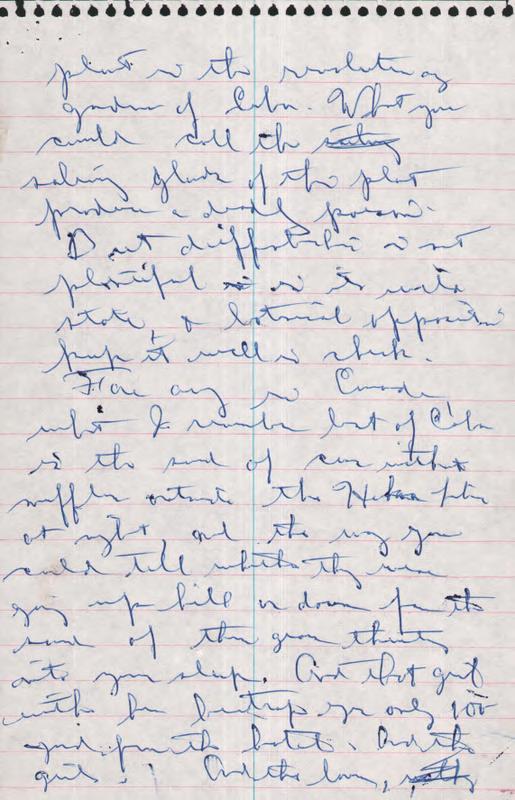 plant in the revolutionary
garden of Cuba. What you
could call the
salivary glands of the plant
produce a deadly poison.
But dieffenbachia is not
plentiful in its native
state, & botanical opposition
keeps it well in check.
Far away in Canada
what I remember best of Cuba
is the sound of cars without
mufflers outside the Habana Libre
at night, and the way you
could tell whether they were
going up hill or down from the
sound of their gears
into your sleep. And that girl
with her only 100
yards from the hotel. And the
girls! And the